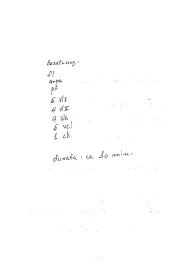 Besetzung.
fl
arpa
pf
5 vl I
4 vl II
4 vla
5 vcl
1 cb.
durata : ca 30 min.